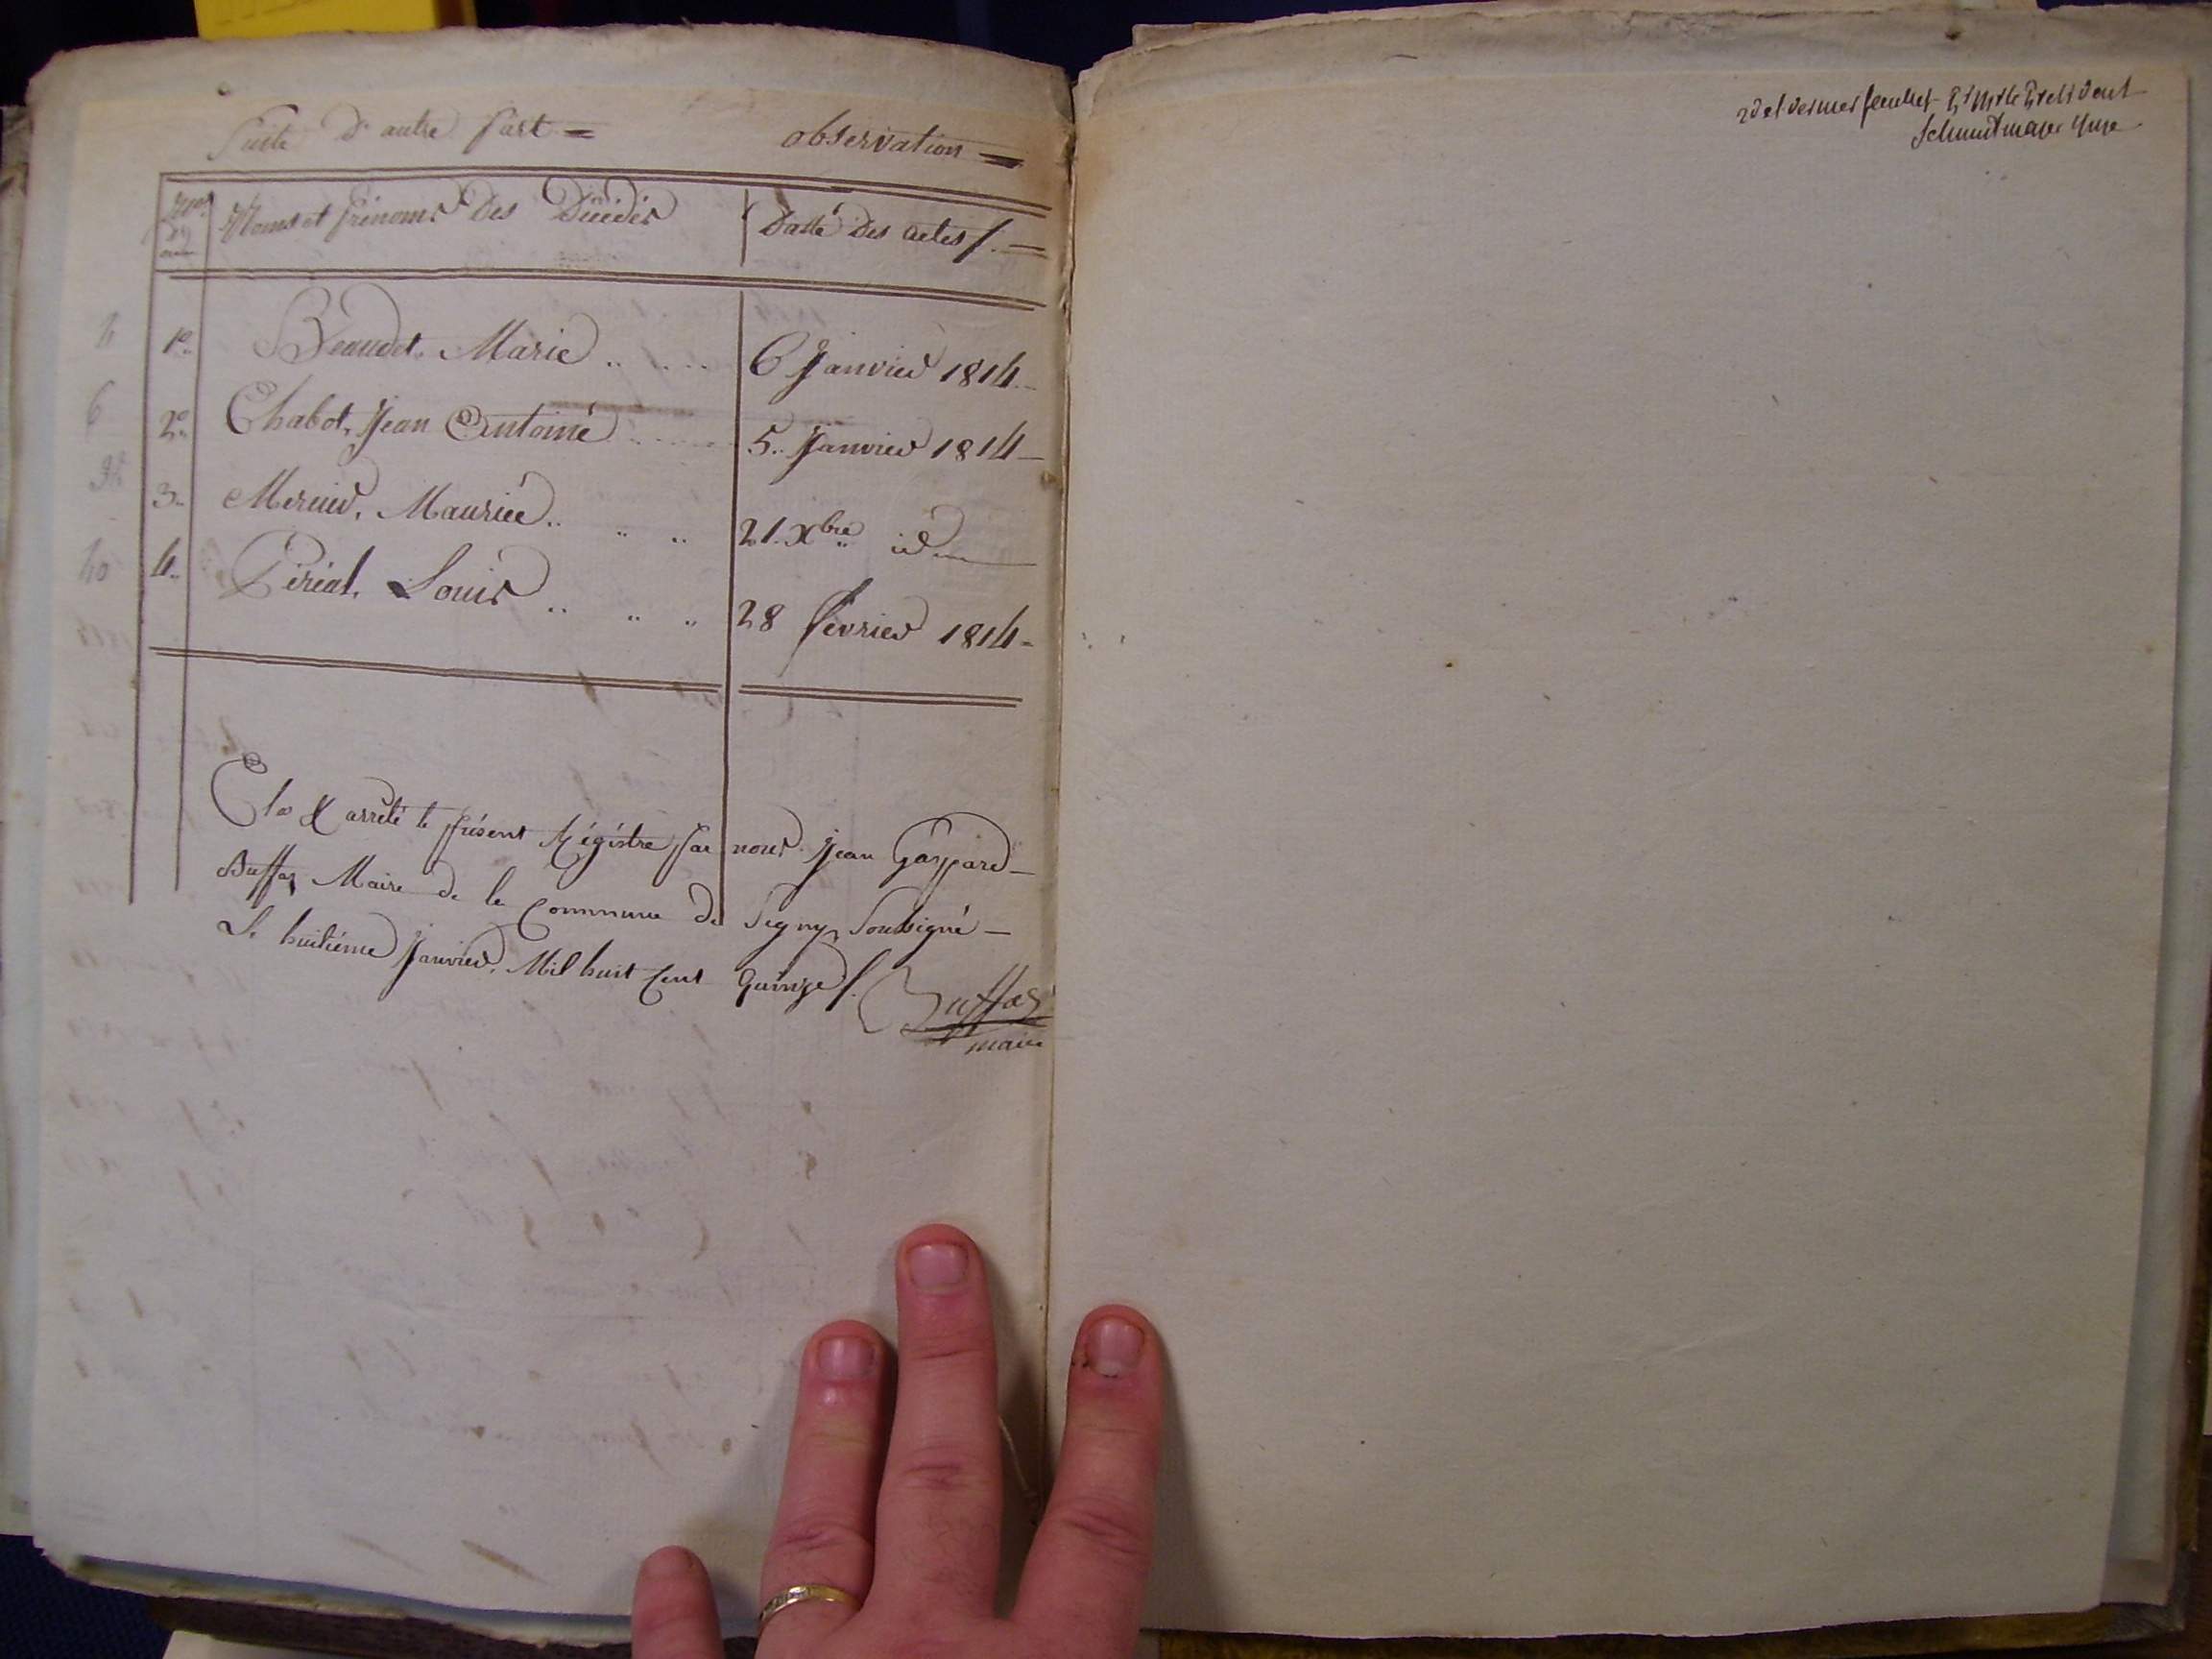 Suite d'autre part = observation =
Nos
Noms et Prénoms des Décédés Datte des actes /. =
1o. Beaudet, Marie .. .. .. 6 Janvier 1814.
2o. Chabot, Jean Antoine 5.. Janvier 1814
3.. Mernier, Maurice .. .. .. 21. Xbre id
4.. Périat, Louis .. .. .. 28 février 1814
Clos & arrêté le présent Régistre par nous Jean Gaspard
Buffaz Maire de la Commune de Segny, Soubsigné
Le huitiéme Janvier, Mil huit Cent Quinze /.
Buffaz
maire
2d et dernier feuillet President
Schmidtmeyer Juge